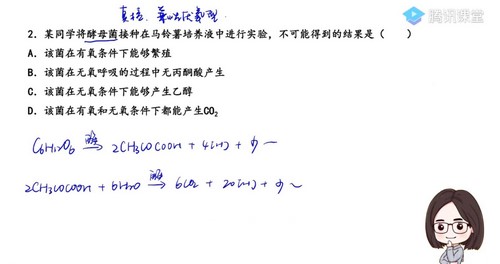 真核、兼性厌氧型.
腾讯课堂
2. 某同学将酵母菌接种在马铃薯培养液中进行实验，不可能得到的结果是（　　）
A．该菌在有氧条件下能够繁殖
B．该菌在无氧呼吸的过程中无丙酮酸产生
C．该菌在无氧条件下能够产生乙醇
D．该菌在有氧和无氧条件下都能产生CO2
C6H12O6 酶→ 2CH3COCOOH + 4[H] + 少
2CH3COCOOH + 6H2O 酶→ 6CO2 + 20[H] + 少